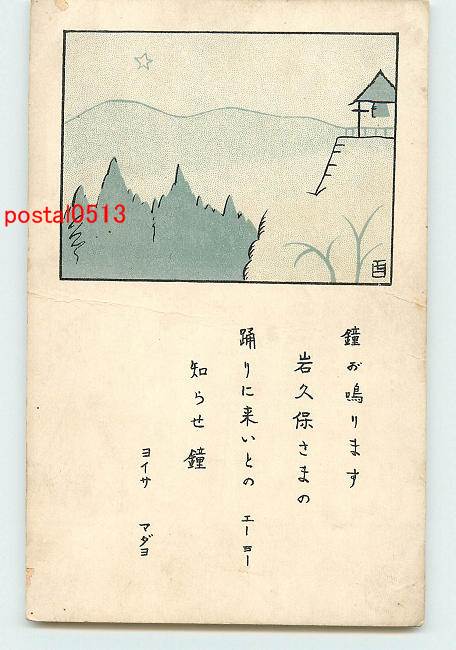 鐘が鳴ります
岩久保さまの
踊りに来いとの エーヨー
知らせ鐘
ヨイサ マダヨ
酉
postal0513